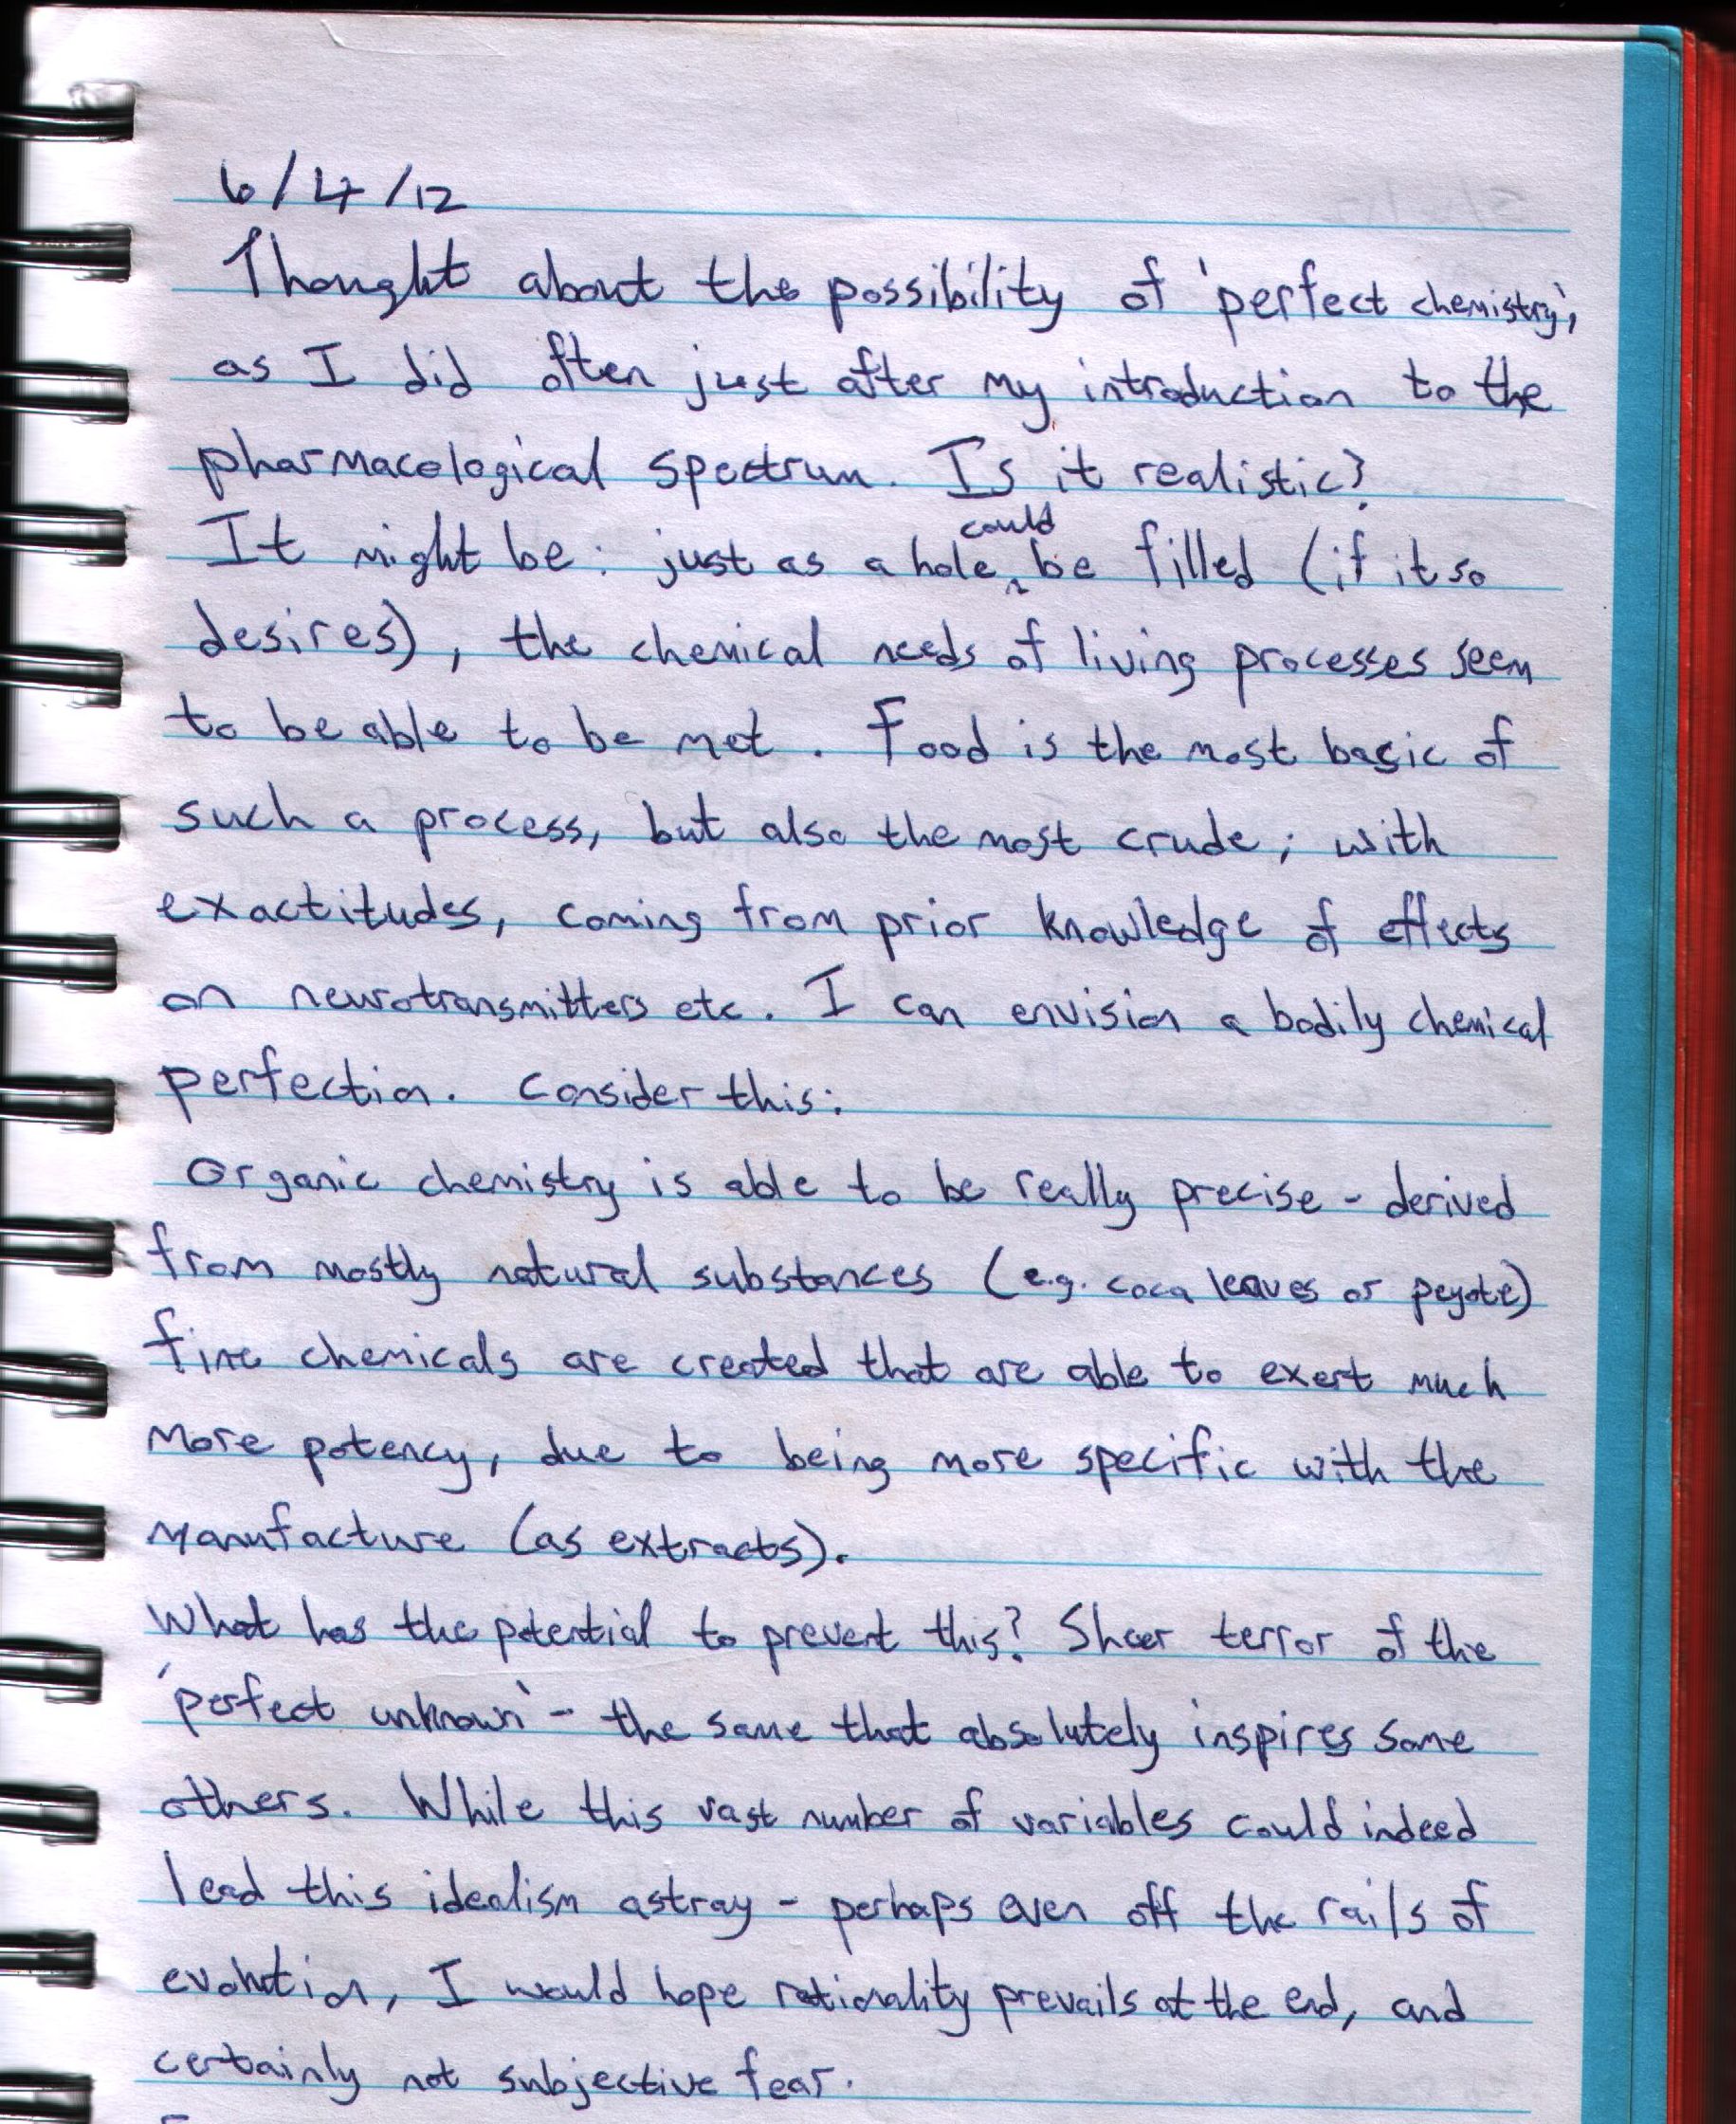 6/4/12
Thought about the possibility of 'perfect chemistry',
as I did often just after my introduction to the
pharmacological spectrum. Is it realistic?
It might be: just as a hole could be filled (if it so
desires), the chemical needs of living processes seem
to be able to be met. Food is the most basic of
such a process, but also the most crude; with
exactitudes, coming from prior knowledge of effects
on neurotransmitters etc. I can envision a bodily chemical
perfection. Consider this:
Organic chemistry is able to be really precise - derived
from mostly natural substances (e.g. coca leaves or peyote)
fine chemicals are created that are able to exert much
more potency, due to being more specific with the
manufacture (as extracts).
What has the potential to prevent this? Sheer terror of the
'perfect unknown' - the same that absolutely inspires some
others. While this vast number of variables could indeed
lead this idealism astray - perhaps even off the rails of
evolution, I would hope rationality prevails at the end, and
certainly not subjective fear.